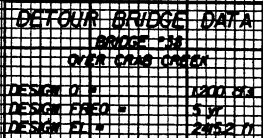 DETOUR BRIDGE DATA
BRIDGE #38
OVER CRAB CREEK
DESIGN Q = 1200 cfs
DESIGN FREQ = 5 yr
DESIGN EL = 2415.2 ft